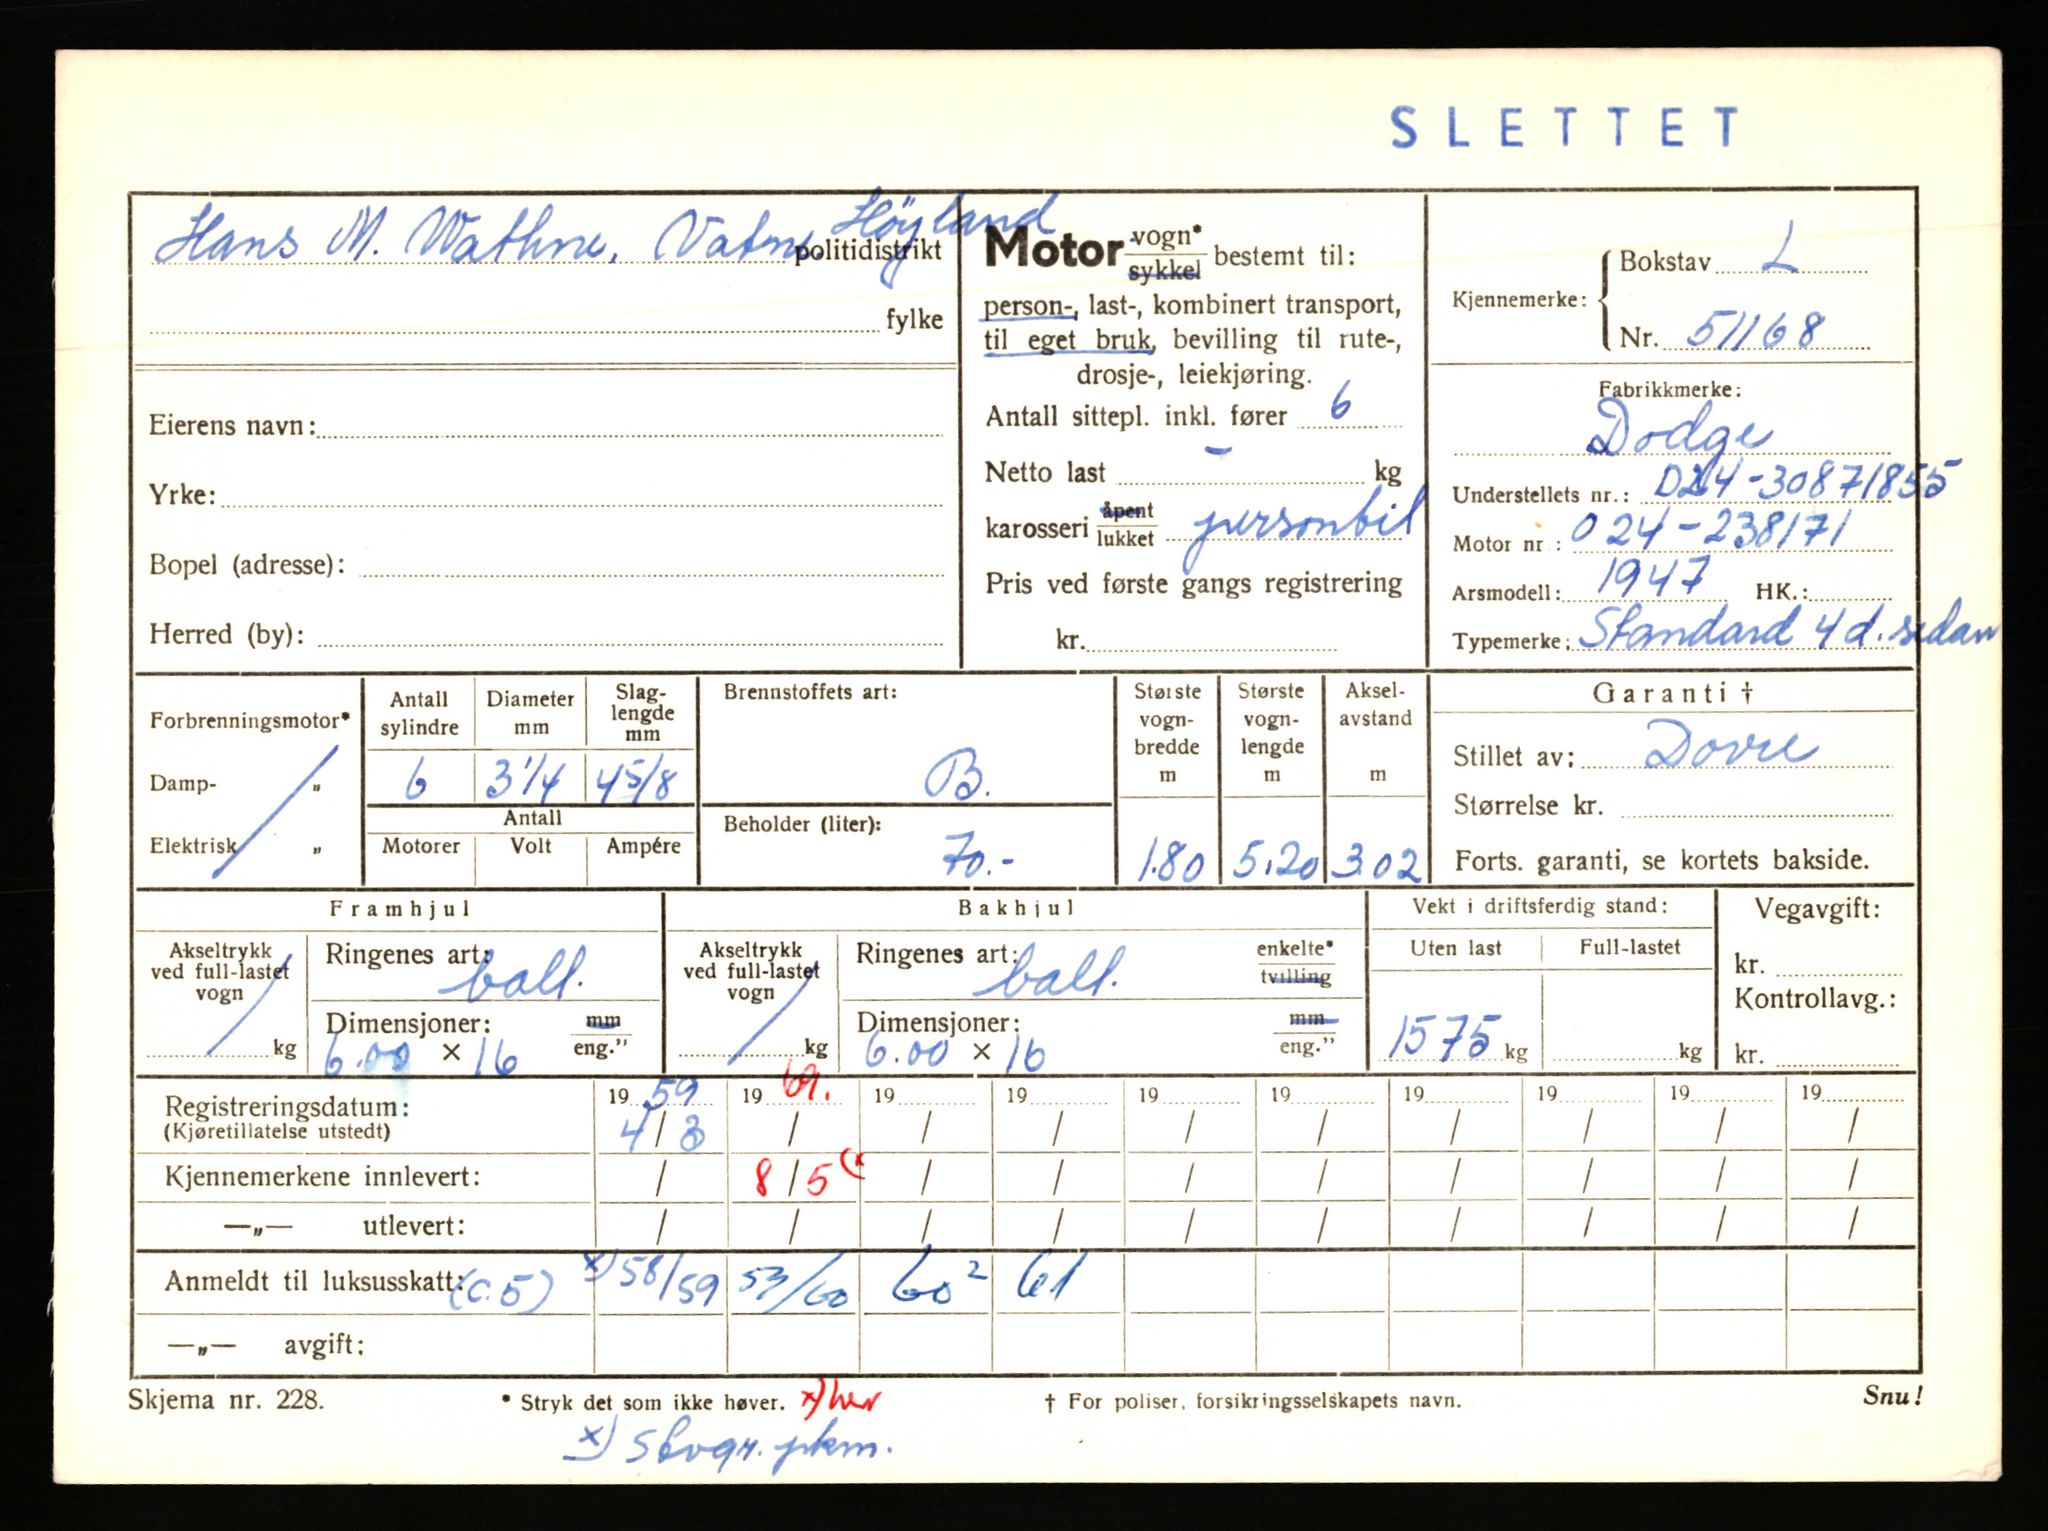 SLETTET
Hans M. Wathne, Vatne, Höyland
politidistrikt
fylke
Eierens navn:
Yrke:
Bopel (adresse):
Herred (by):
Motor vogn* sykkel bestemt til:
person-, last-, kombinert transport,
til eget bruk, bevilling til rute-,
drosje-, leiekjøring.
Antall sittepl. inkl. fører 6
Netto last - kg
karosseri åpent lukket personbil
Pris ved første gangs registrering
kr.
Kjennemerke: Bokstav L
Nr. 51168
Fabrikkmerke:
Dodge
Understellets nr.: D24-30871855
Motor nr: 024-238171
Arsmodell: 1947 HK.:
Typemerke: Standard 4 d. sedan
Forbrenningsmotor*
Damp- „
Elektrisk „
Antall sylindre Diameter mm Slag-lengde mm
6 3 1/4 4 5/8
Antall
Motorer Volt Ampére
Brennstoffets art:
B.
Beholder (liter):
70.-
Største vogn-bredde m Største vogn-lengde m Aksel-avstand m
1.80 5.20 3.02
Garanti †
Stillet av: Dovre
Størrelse kr.
Forts. garanti, se kortets bakside.
Framhjul
Akseltrykk ved full-lastet vogn kg
Ringenes art: ball.
Dimensjoner: mm eng."
6.00 × 16
Bakhjul
Akseltrykk ved full-lastet vogn kg
Ringenes art: ball. enkelte* tvilling
Dimensjoner: mm eng."
6.00 × 16
Vekt i driftsferdig stand:
Uten last Full-lastet
1575 kg kg
Vegavgift:
kr.
Kontrollavg.:
kr.
Registreringsdatum: 19 59 19 69. 19 19 19 19 19 19 19 19
(Kjøretillatelse utstedt) 4/3 / / / / / / / / /
Kjennemerkene innlevert: / 8/5 (x / / / / / / / /
—„— utlevert: / / / / / / / / / /
Anmeldt til luksusskatt: (C.5) x) 58/59 59/60 60² 61
—„— avgift:
Skjema nr. 228. * Stryk det som ikke høver. x) her † For poliser, forsikringsselskapets navn. Snu!
x)